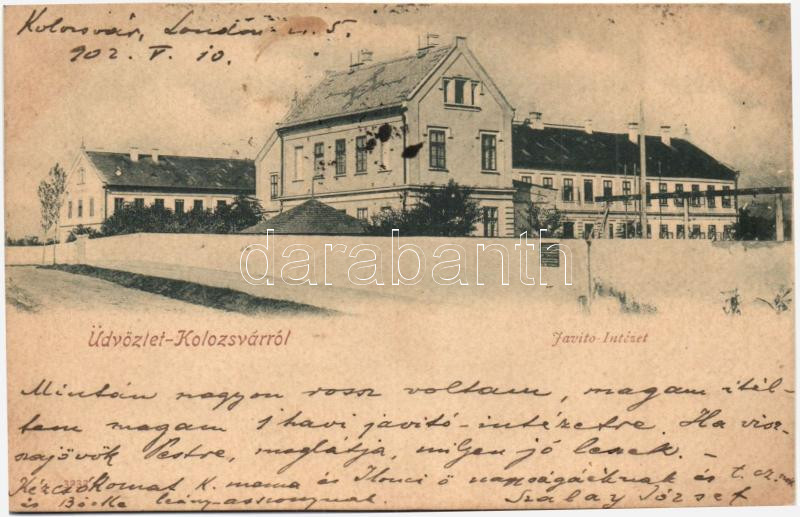 Kolozsvár, London u. 5.
902. V. 10.
darabanth.com
Üdvözlet-Kolozsvárról
Javito-Intézet
Mintán nagyon rossz voltam, magam itél-
tem magam 1 havi javitó-intézetre. Ha visz-
szajövök Pestre, meglátja, milyen jó leszek. -
3232
Kézcsókomat K. mama és Ilonci ő nagyságáiknak és t. cz.
és Böske leány-asszonynak. Szalay József